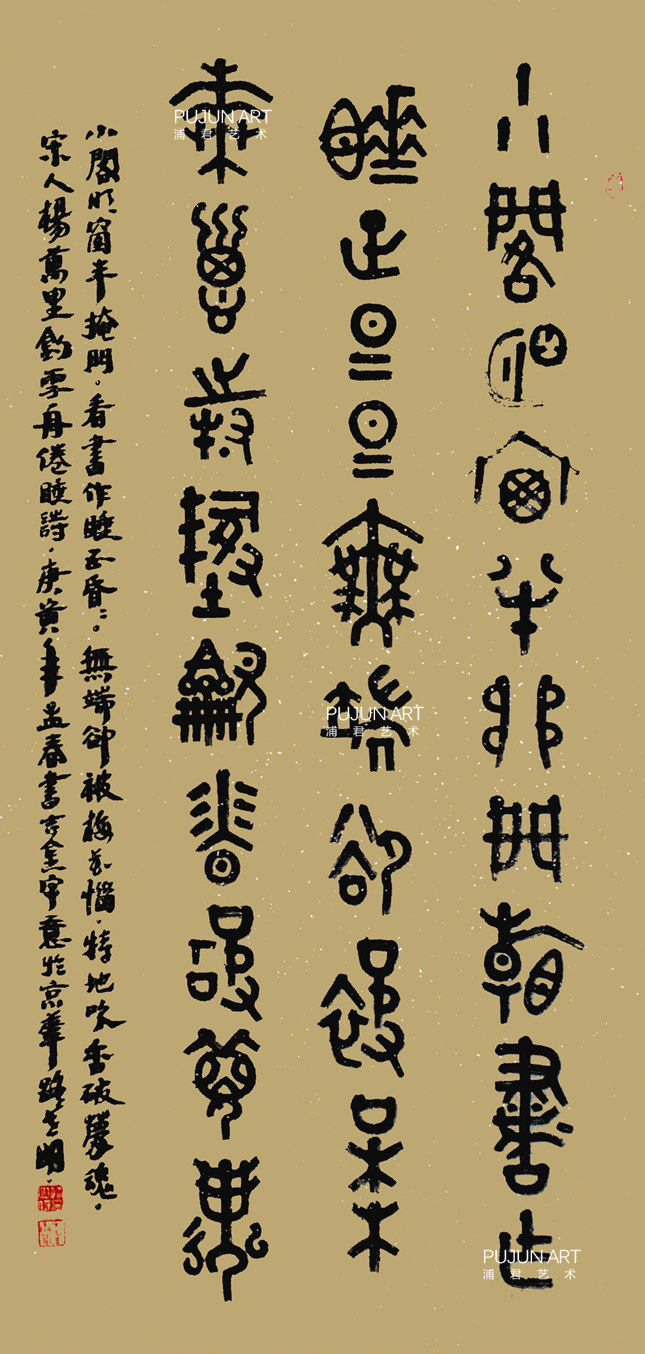 小閣明窗半掩門看書作
睡正昏昏無端卻被梅
花惱特地吹香破夢魂
小閣明窗半掩門。看書作睡正昏〻。無端卻被梅花惱。特地吹香破夢魂。
宋人楊萬里釣雪舟倦睡詩。庚寅年孟春書吉金字意於京華路明。
PUJUN ART
浦君艺术
PUJUN ART
浦君艺术
PUJUN ART
浦君艺术